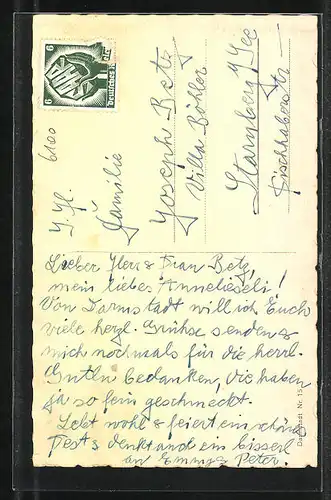 6
6
Deutsches Reich
6100
S. Hl.
Familie
Joseph Betz
Villa Böhler
Starnberg a/See
Lieber Herr & Frau Betz,
mein liebes Annelieseli!
Von Darmstadt will ich Euch
viele herzl. Grühse senden &
mich nochmals für die herrl.
Gutln bedanken, die haben
ja so fein geschmeckt.
Lebt wohl & feiert ein schöne
Fest & denkt and ein bisserl
an Emmy & Peter.
Darmstadt Nr. 15